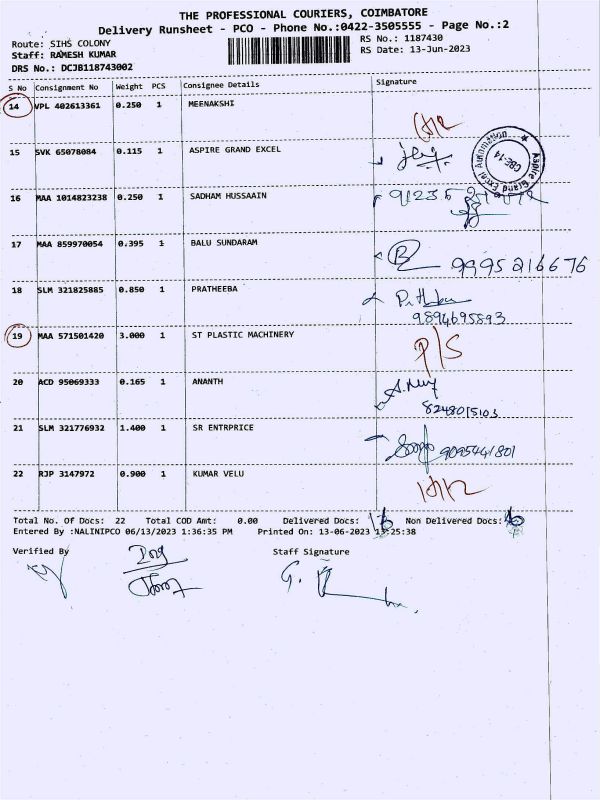 THE PROFESSIONAL COURIERS, COIMBATORE
Delivery Runsheet - PCO - Phone No.:0422-3505555 - Page No.:2
Route: SIHS COLONY
RS No.: 1187430
Staff: RAMESH KUMAR
RS Date: 13-Jun-2023
DRS No.: DCJB118743002
S No Consignment No Weight PCS Consignee Details Signature
14 VPL 402613361 0.250 1 MEENAKSHI
15 SVK 65078084 0.115 1 ASPIRE GRAND EXCEL
Aspire Grand Excel Automation
CBE-14
16 MAA 1014823238 0.250 1 SADHAM HUSSAAIN
17 MAA 859970054 0.395 1 BALU SUNDARAM
B 9995216676
18 SLM 321825885 0.850 1 PRATHEEBA
9894695893
19 MAA 571501420 3.000 1 ST PLASTIC MACHINERY P/S
20 ACD 95069333 0.165 1 ANANTH
8248015103
21 SLM 321776932 1.400 1 SR ENTRPRICE
9095441801
22 RJP 3147972 0.900 1 KUMAR VELU
Total No. Of Docs: 22 Total COD Amt: 0.00 Delivered Docs: Non Delivered Docs:
Entered By :NALINIPCO 06/13/2023 1:36:35 PM Printed On: 13-06-2023 13:25:38
Verified By Staff Signature